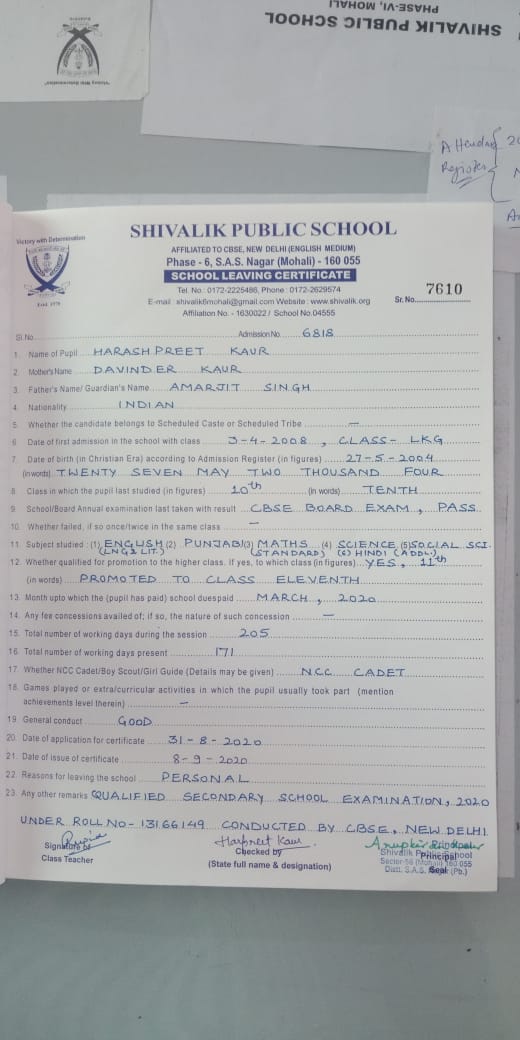 PHASE-VI, MOHALI
SHIVALIK PUBLIC SCHOOL
"Victory With Determination"
Attendance 20
Register
Victory with Determination
Estd. 1970
SHIVALIK PUBLIC SCHOOL
AFFILIATED TO CBSE, NEW DELHI (ENGLISH MEDIUM)
Phase - 6, S.A.S. Nagar (Mohali) - 160 055
SCHOOL LEAVING CERTIFICATE
Tel. No. 0172-2225486, Phone : 0172-2629574
E-mail : shivalik6mohali@gmail.com Website : www.shivalik.org
Affiliation No. - 1630022 / School No.04555
Sr. No. 7610
Sl.No. Admission No. 6818
1. Name of Pupil HARASHPREET KAUR
2. Mother's Name DAVINDER KAUR
3. Father's Name/ Guardian's Name AMARJIT SINGH
4. Nationality INDIAN
5. Whether the candidate belongs to Scheduled Caste or Scheduled Tribe —
6. Date of first admission in the school with class 3-4-2008, CLASS- LKG
7. Date of birth (in Christian Era) according to Admission Register (in figures) 27-5-2004
(in words) TWENTY SEVEN MAY TWO THOUSAND FOUR
8. Class in which the pupil last studied (in figures) 10th (in words) TENTH
9. School/Board Annual examination last taken with result CBSE BOARD EXAM, PASS
10. Whether failed, if so once/twice in the same class —
11. Subject studied : (1) ENGLISH (2) PUNJABI (3) MATHS (4) SCIENCE (5) SOCIAL SCI.
(LNG & LIT.) (STANDARD) (6) HINDI (ADDL.)
12. Whether qualified for promotion to the higher class. If yes, to which class (in figures) YES, 11th
(in words) PROMOTED TO CLASS ELEVENTH
13. Month upto which the (pupil has paid) school duespaid MARCH, 2020
14. Any fee concessions availed of; if so, the nature of such concession —
15. Total number of working days during the session 205
16. Total number of working days present 171
17. Whether NCC Cadet/Boy Scout/Girl Guide (Details may be given) NCC CADET
18. Games played or extra/curricular activities in which the pupil usually took part (mention
achievements level therein) —
19. General conduct GOOD
20. Date of application for certificate 31-8-2020
21. Date of issue of certificate 8-9-2020
22. Reasons for leaving the school PERSONAL
23. Any other remarks QUALIFIED SECONDARY SCHOOL EXAMINATION, 2020
UNDER ROLL NO- 13166149 CONDUCTED BY CBSE, NEW DELHI
Signature of
Class Teacher
Harpreet Kaur
Checked by
(State full name & designation)
Principal
Shivalik Public School
Sector-56 (Mohali) 160 055
Distt. S.A.S. Nagar (Pb.)
Principal
Seal